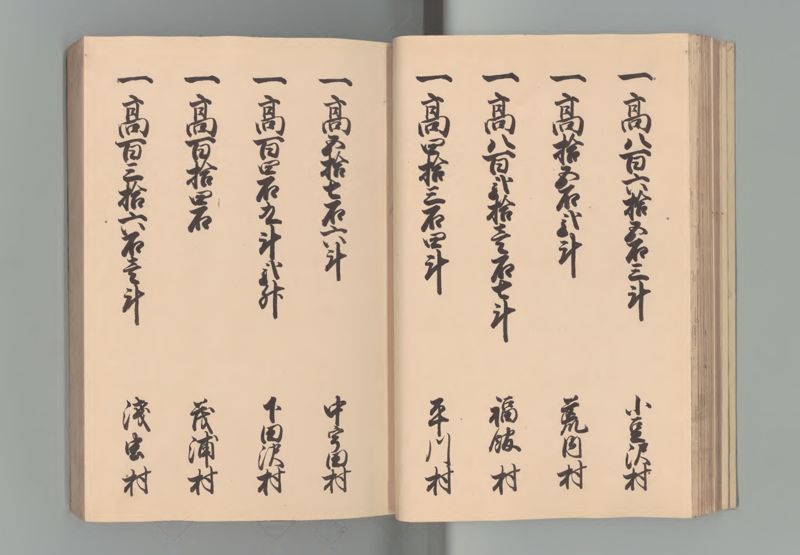 一高八百六拾五石三斗 小豆沢村
一高拾五石弐斗 荒内村
一高八百弐拾壱石七斗 福舘村
一高四拾三石四斗 平川村
一高五拾七石六斗 中宇田村
一高百四石九斗弐升 下田沢村
一高百拾四石 茂浦村
一高百三拾六石壱斗 浅虫村